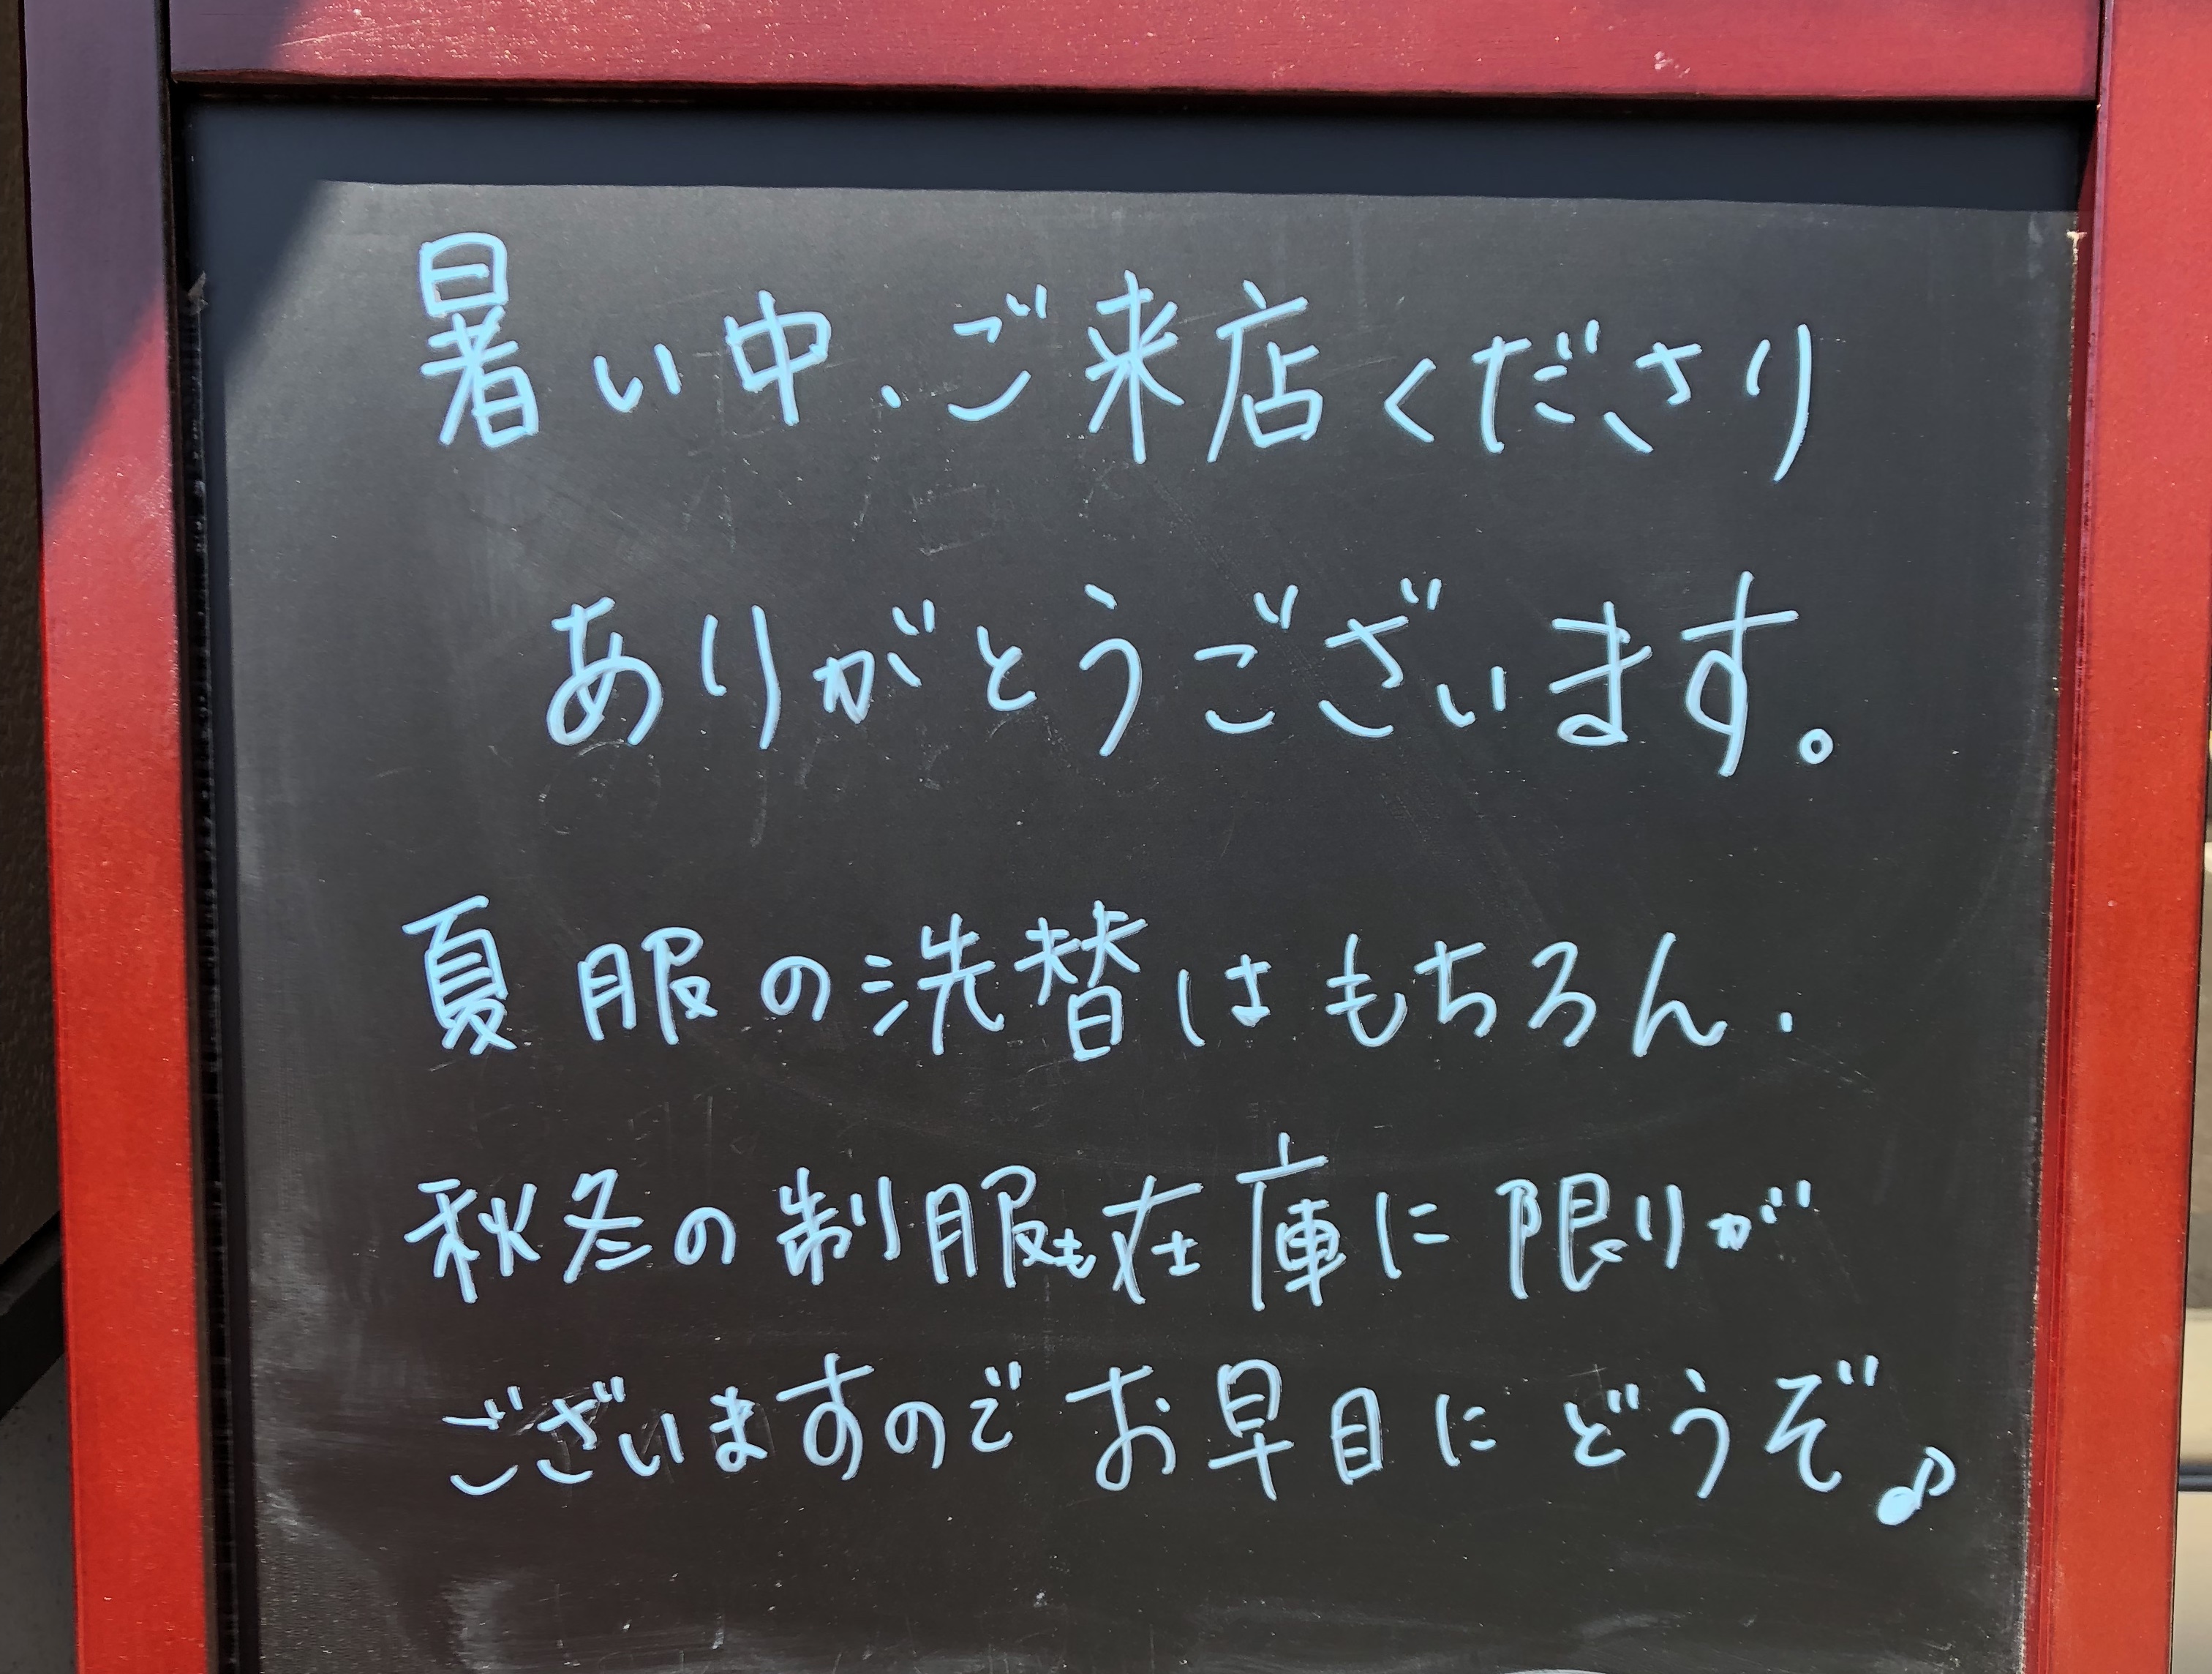 暑い中、ご来店くださり
ありがとうございます。
夏服の洗替はもちろん、
秋冬の制服も在庫に限りが
ございますのでお早目にどうぞ♪